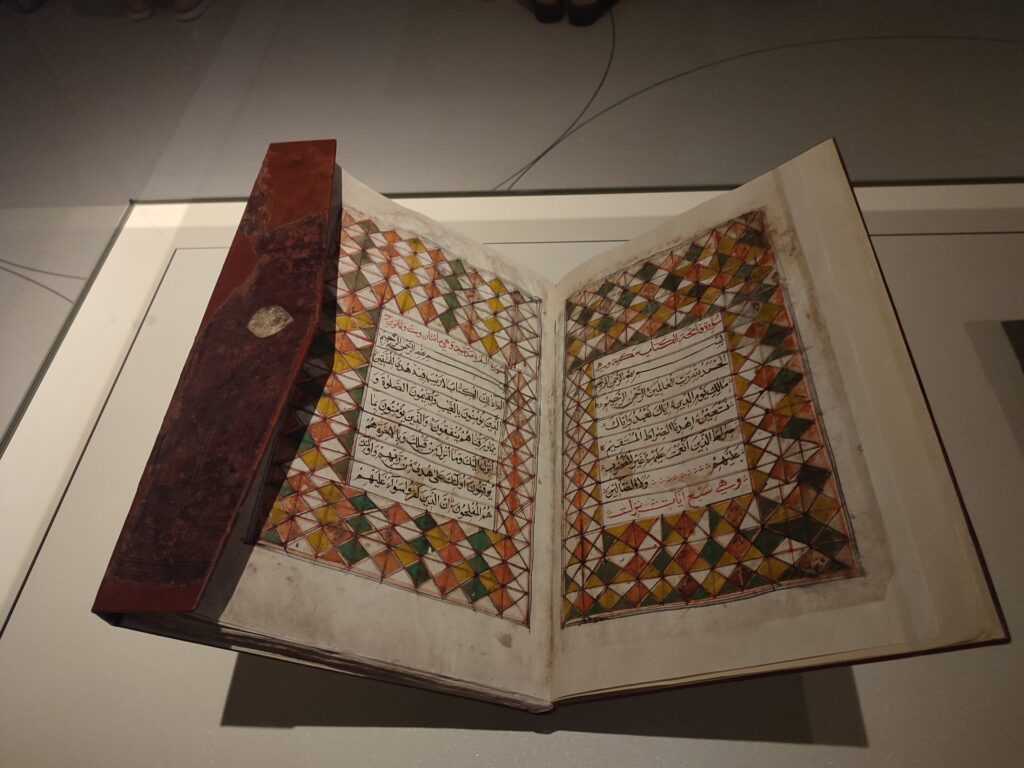 سورة فاتحة الكتاب مكية وهي
بسم الله الرحمن الرحيم
الحمد لله رب العالمين الرحمن الرحيم
مالك يوم الدين اياك نعبد واياك
نستعين اهدنا الصراط المستقيم
صراط الذين انعمت عليهم غير المغضوب
عليهم ولا الضالين
وهي سبع ايات نزلت
سورة البقرة مدنية وهي مائتان وست وثمانون
بسم الله الرحمن الرحيم
الم ذلك الكتاب لا ريب فيه هدى للمتقين
الذين يؤمنون بالغيب ويقيمون الصلوة و
مما رزقناهم ينفقون والذين يؤمنون بما
انزل اليك وما انزل من قبلك وبالاخرة هم
يوقنون اولئك على هدى من ربهم واولئك
هم المفلحون ان الذين كفروا سواء عليهم